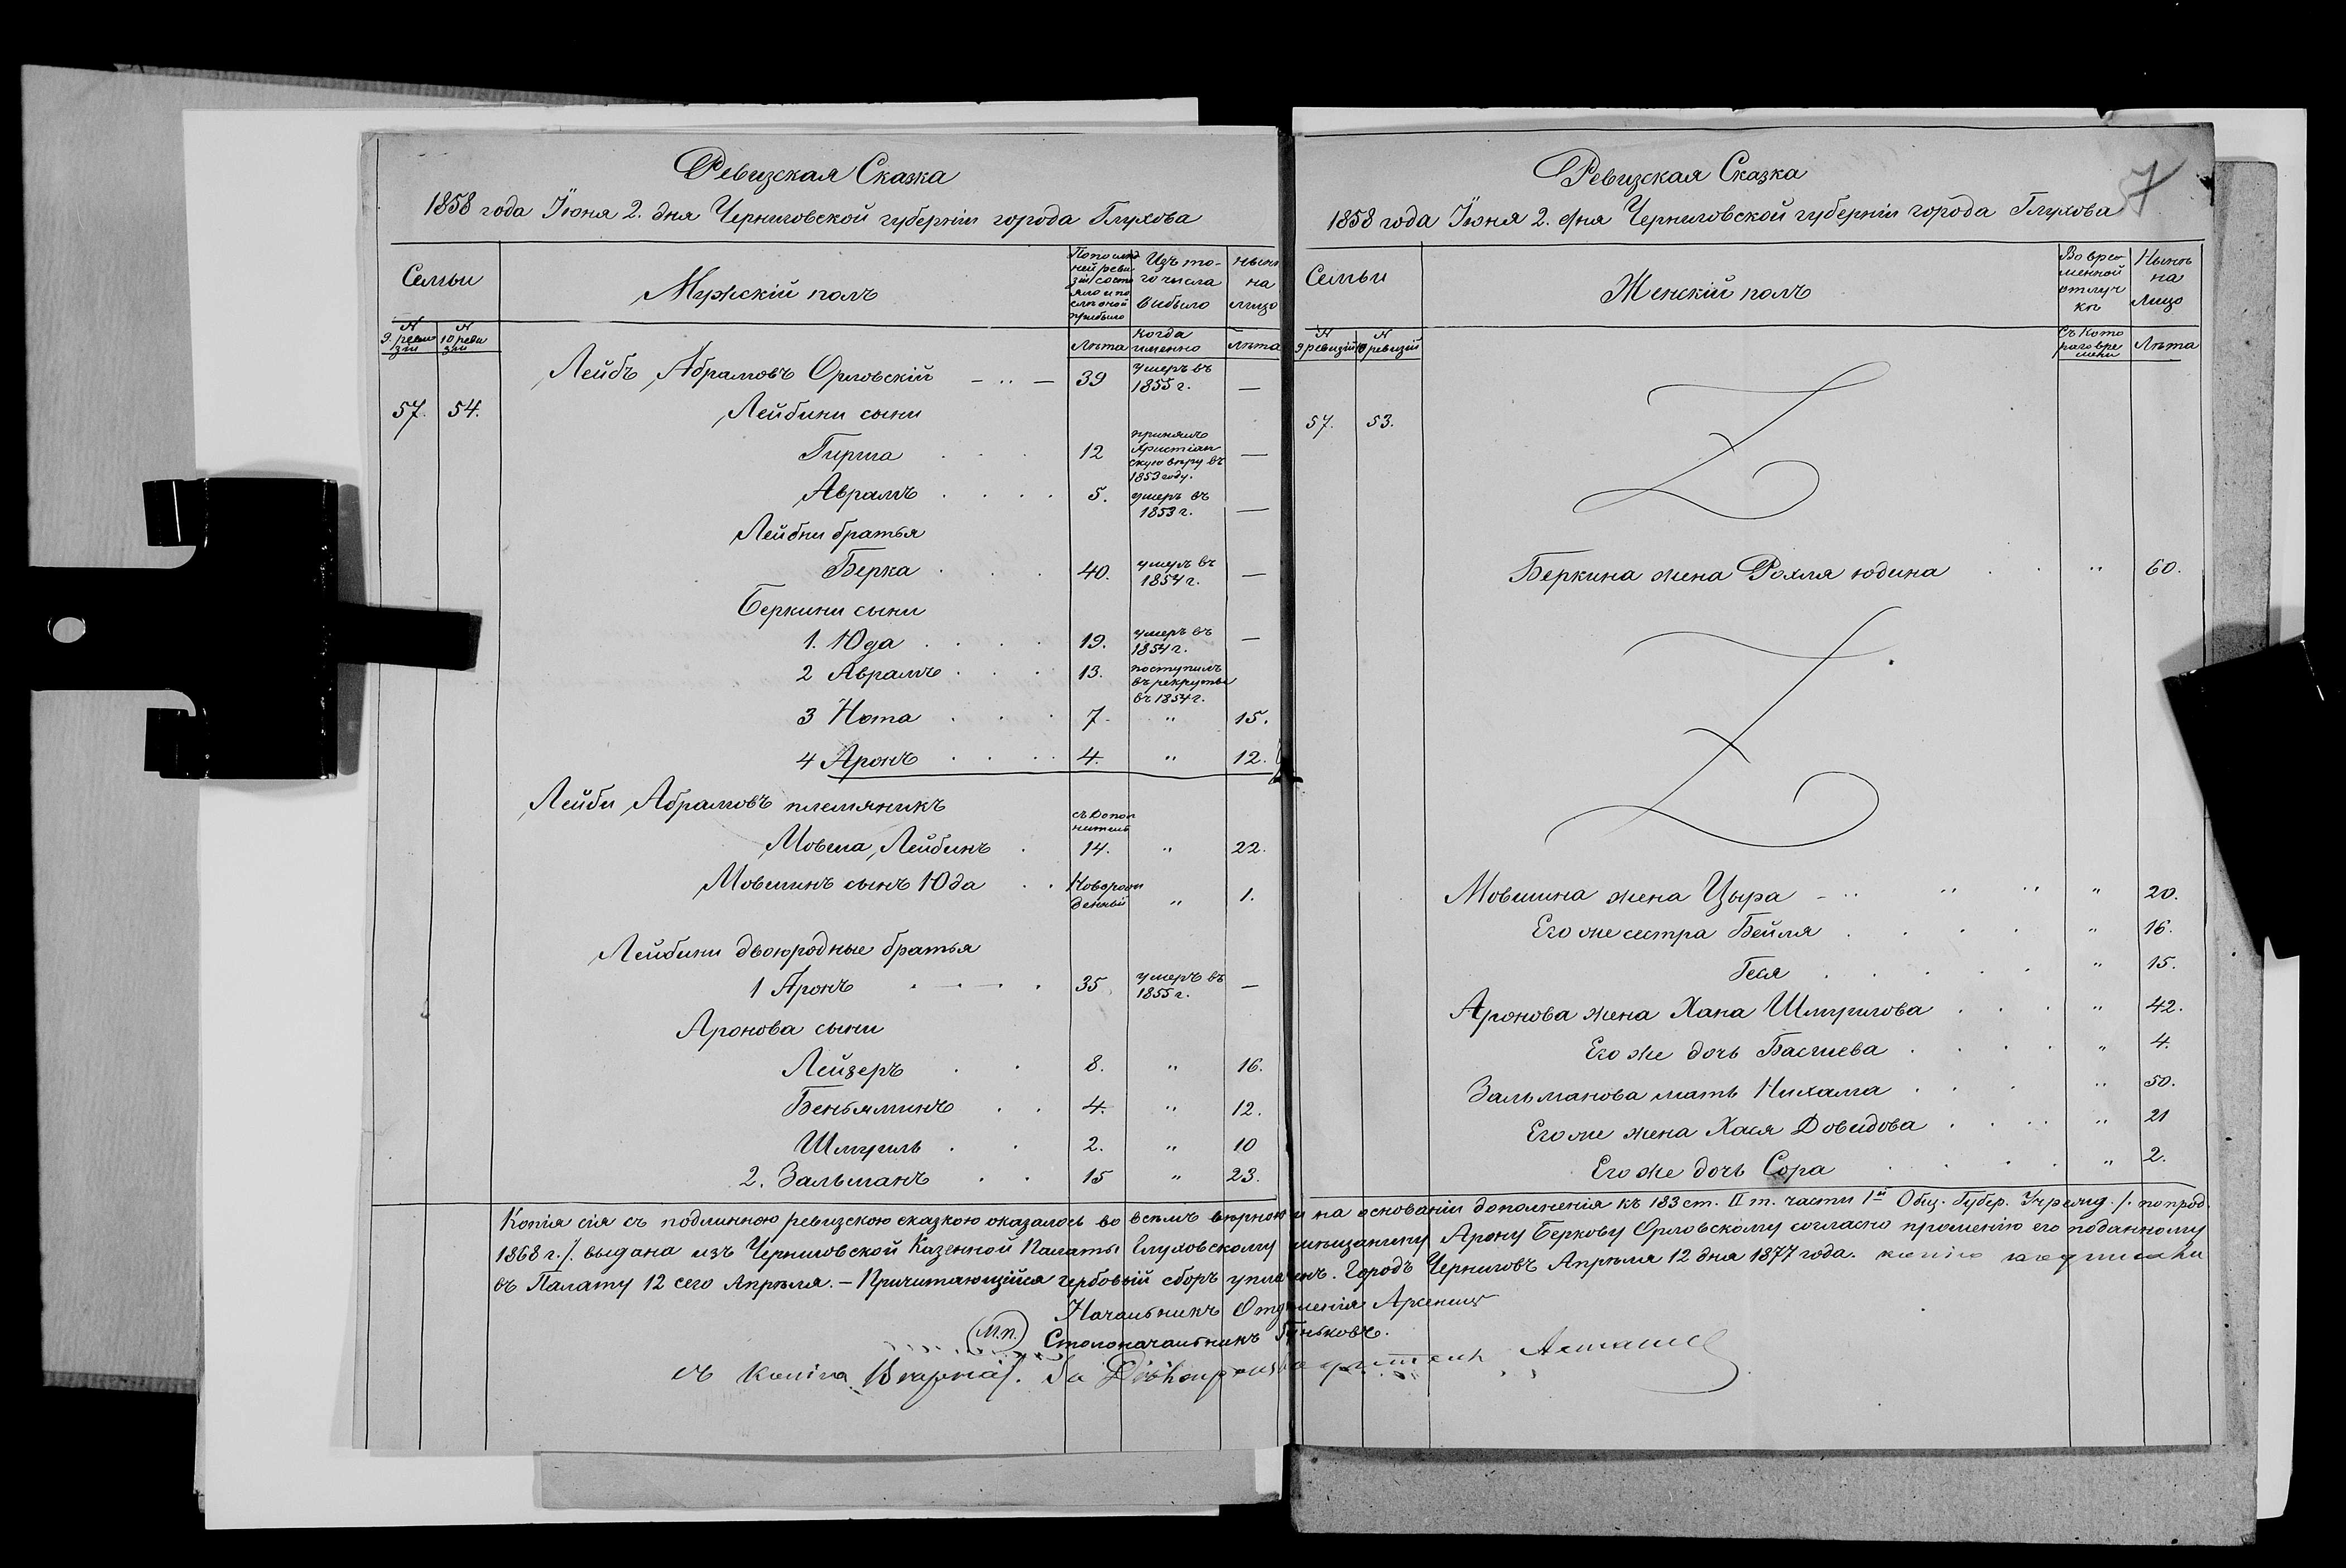 Ревизская Сказка
1858 года Іюня 2. дня Черниговской губерніи города Глухова
Семьи
Мужскій полъ
По послѣд
ней реви
зіи состо
яло и по
слѣ оной
прибыло
Изъ то-
го числа
выбыло
нынѣ
на
лицо
N
9. реви
зіи
N
10 реви
зіи
Лѣта
когда
именно
Лѣта
Лейбъ Абрамовъ Орловскій — " — 39 умеръ въ 1855 г. —
57. 54. Лейбини сыни
Гирша 12 принялъ Христіан скую вѣру въ 1853 году. —
Аврамъ 5. умеръ въ 1853 г. —
Лейбни братья
Берка 40. умеръ въ 1854 г. —
Беркини сыни
1. Юда 19. умеръ въ 1854 г. —
2 Аврамъ 13. поступилъ въ рекруты въ 1854 г.
3 Нота 7. " 15.
4 Аронъ 4. " 12.
Лейби Абрамовъ племяникъ
съ допол
нитель
Мовша Лейбинъ 14. " 22.
Мовшинъ сынъ Юда Новорож денный " 1.
Лейбини двоюродные братья
1 Аронъ 35 умеръ въ 1855 г. —
Аронова сыни
Лейзеръ 8. " 16.
Беньяминъ 4. " 12.
Шмуиль 2. " 10
2. Зальманъ 15 " 23.
7
Ревизская Сказка
1858 года Іюня 2. дня Черниговской губерніи города Глухова
Семьи
Женскій полъ
Во вре-
менной
отлуч
кѣ
Нынѣ
на
Лицо
N
9 ревизіи
N
10 ревизіи
Съ кото
раго вре
мени
Лѣта
57. 53.
Беркина жена Рохля Юдина " 60.
Мовшина жена Цыра " 20.
Его же сестра Бейля " 16.
Геся " 15.
Аронова жена Хана Шмуилова " 42.
Его же дочь Басшева " 4.
Зальманова мать Нихама " 50.
Его же жена Хася Довидова " 21
Его же дочь Сора " 2.
Копія сія съ подлинною ревизскою сказкою оказалось во всемъ вѣрною и на основаніи дополненія къ 183 ст. II т. части 1й Общ. Губер. Учрежд. /. по прод.
1868 г./. выдана изъ Черниговской Казенной Палаты Глуховскому мѣщанину Арону Беркову Орловскому согласно прошенію его поданному
въ Палату 12 сего Апрѣля. — Причитающійся гербовый сборъ уплаченъ. Городъ Черниговъ Апрѣля 12 дня 1877 года.
Начальникъ Отдѣленія
М.п. Столоначальникъ
съ копіею